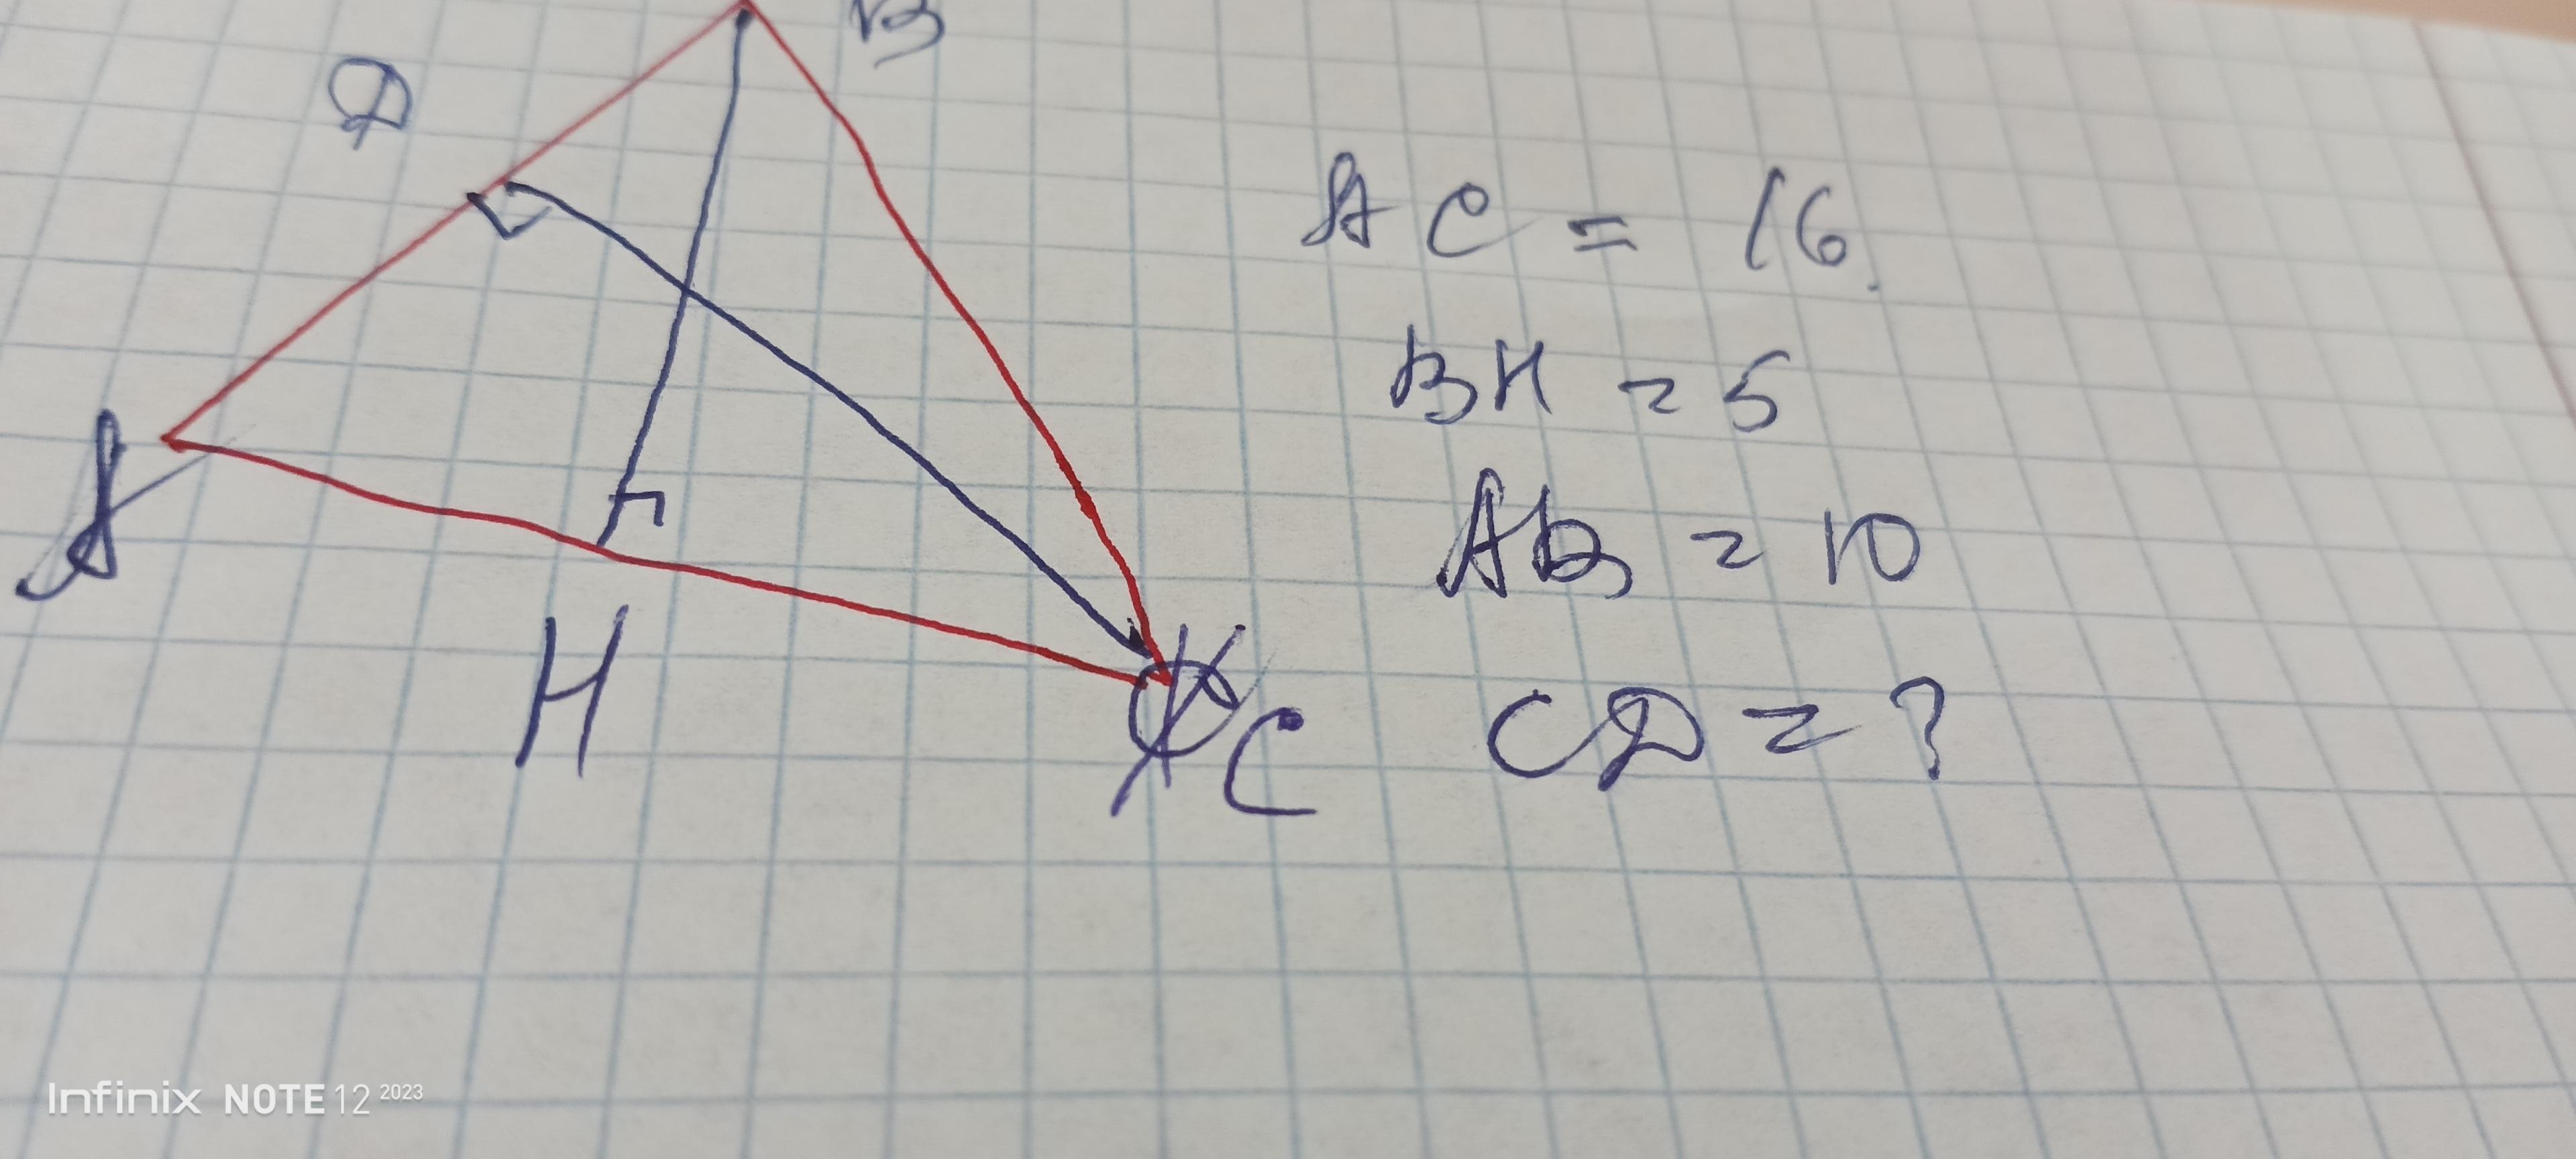 B
D
A
H
C
AC = 16.
BH = 5
AB = 10
CD = ?
Infinix NOTE 12 2023